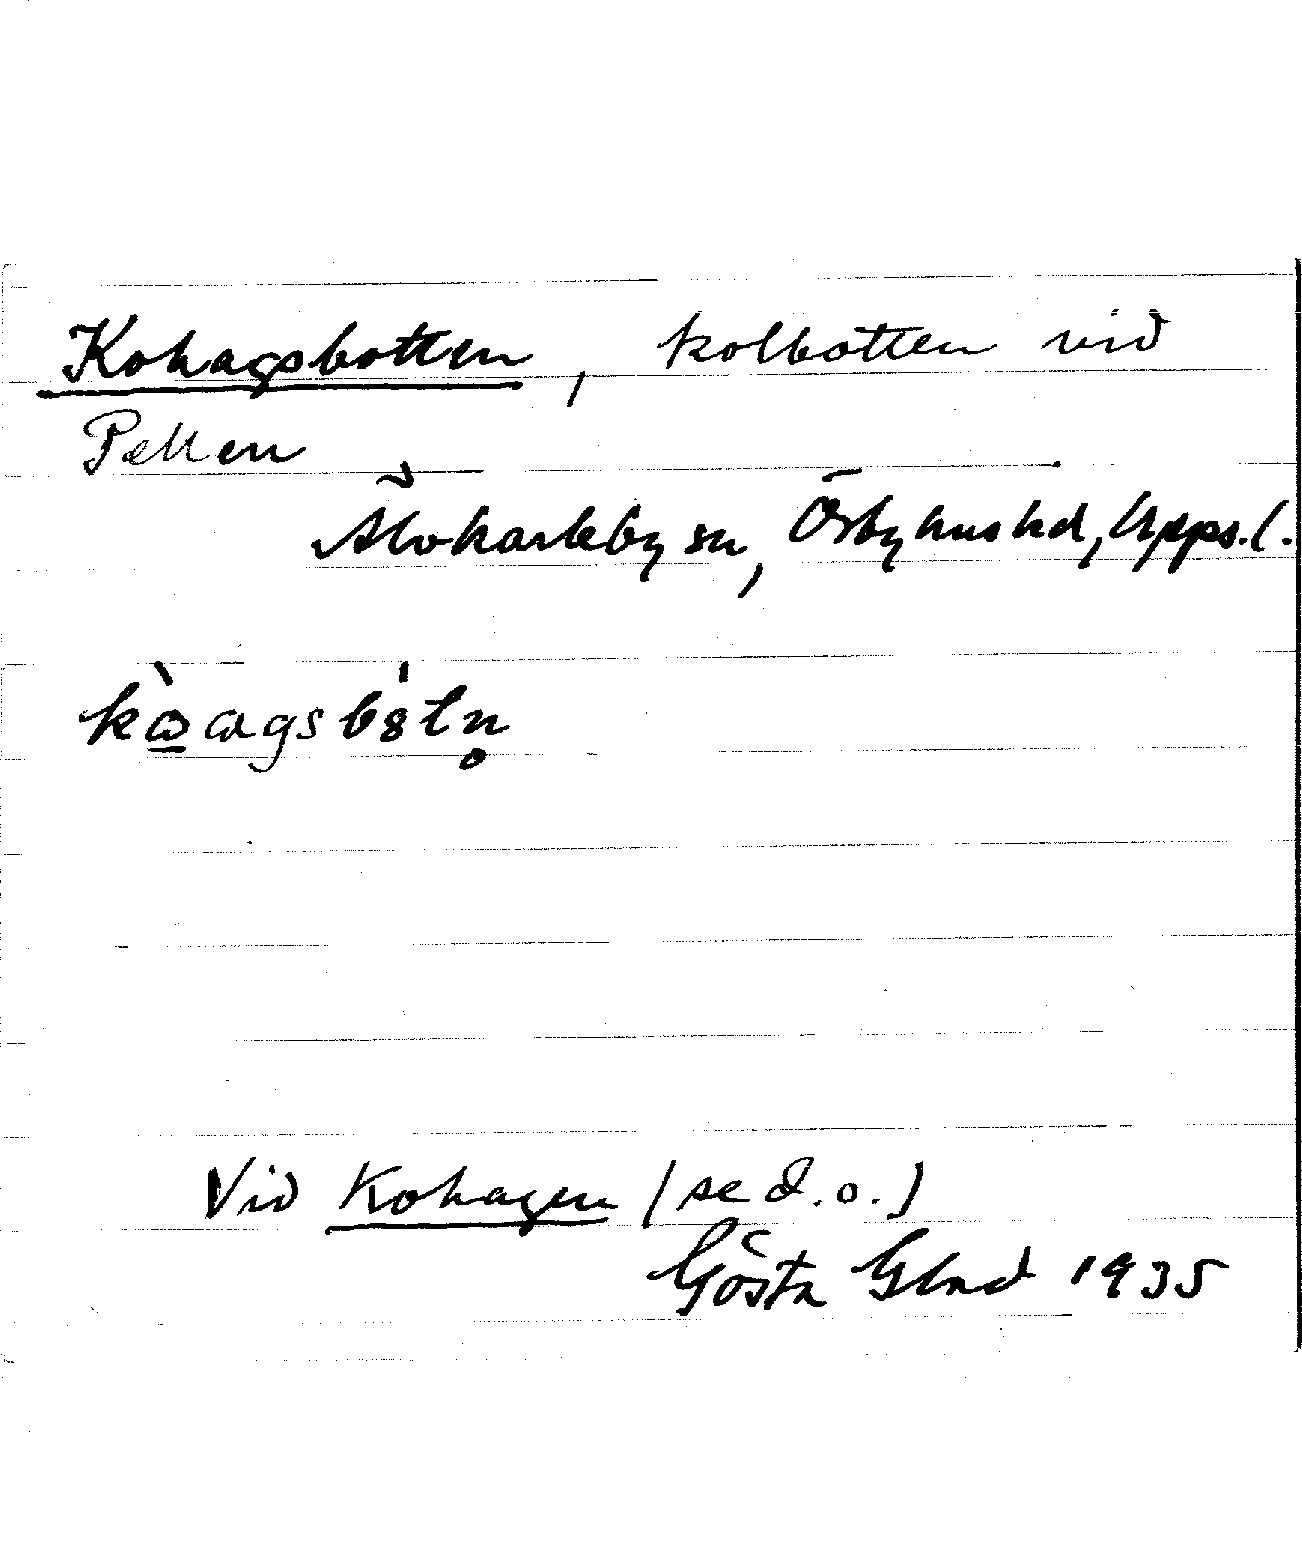 Kohagsbotten, kolbotten vid
Pellen
Älvkarleby sn, Örbyhus hd, Upps. l.
kɷ̠̀ɑgsbȣ́tn̥
Vid Kohagen (se d.o.)
Gösta Glad 1935